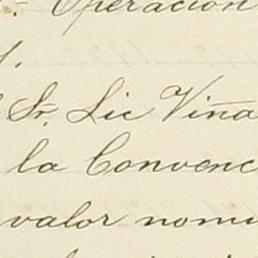 Operación
Sr. Lic Viña
la Convenc
valor nomi